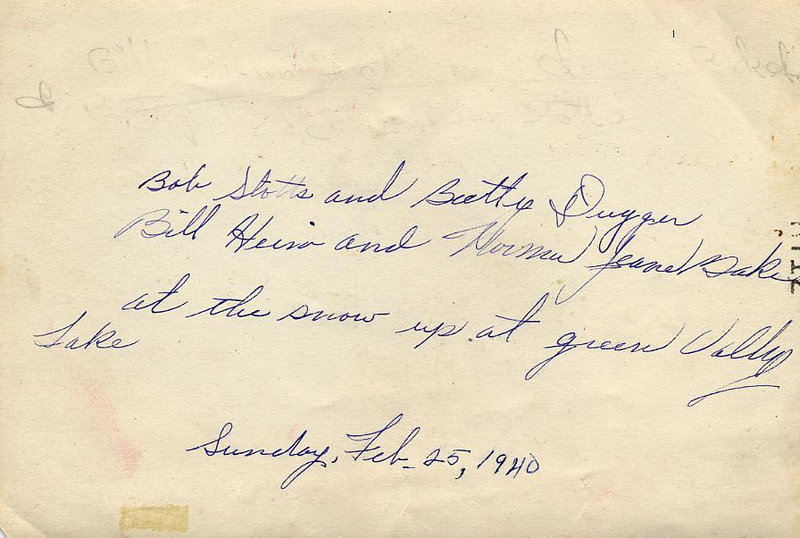 Bob Stotts and Betty Dugger
Bill Heim and Norma Jeane Bake
at the snow up at green Vally
Lake
Sunday, Feb. 25, 1940